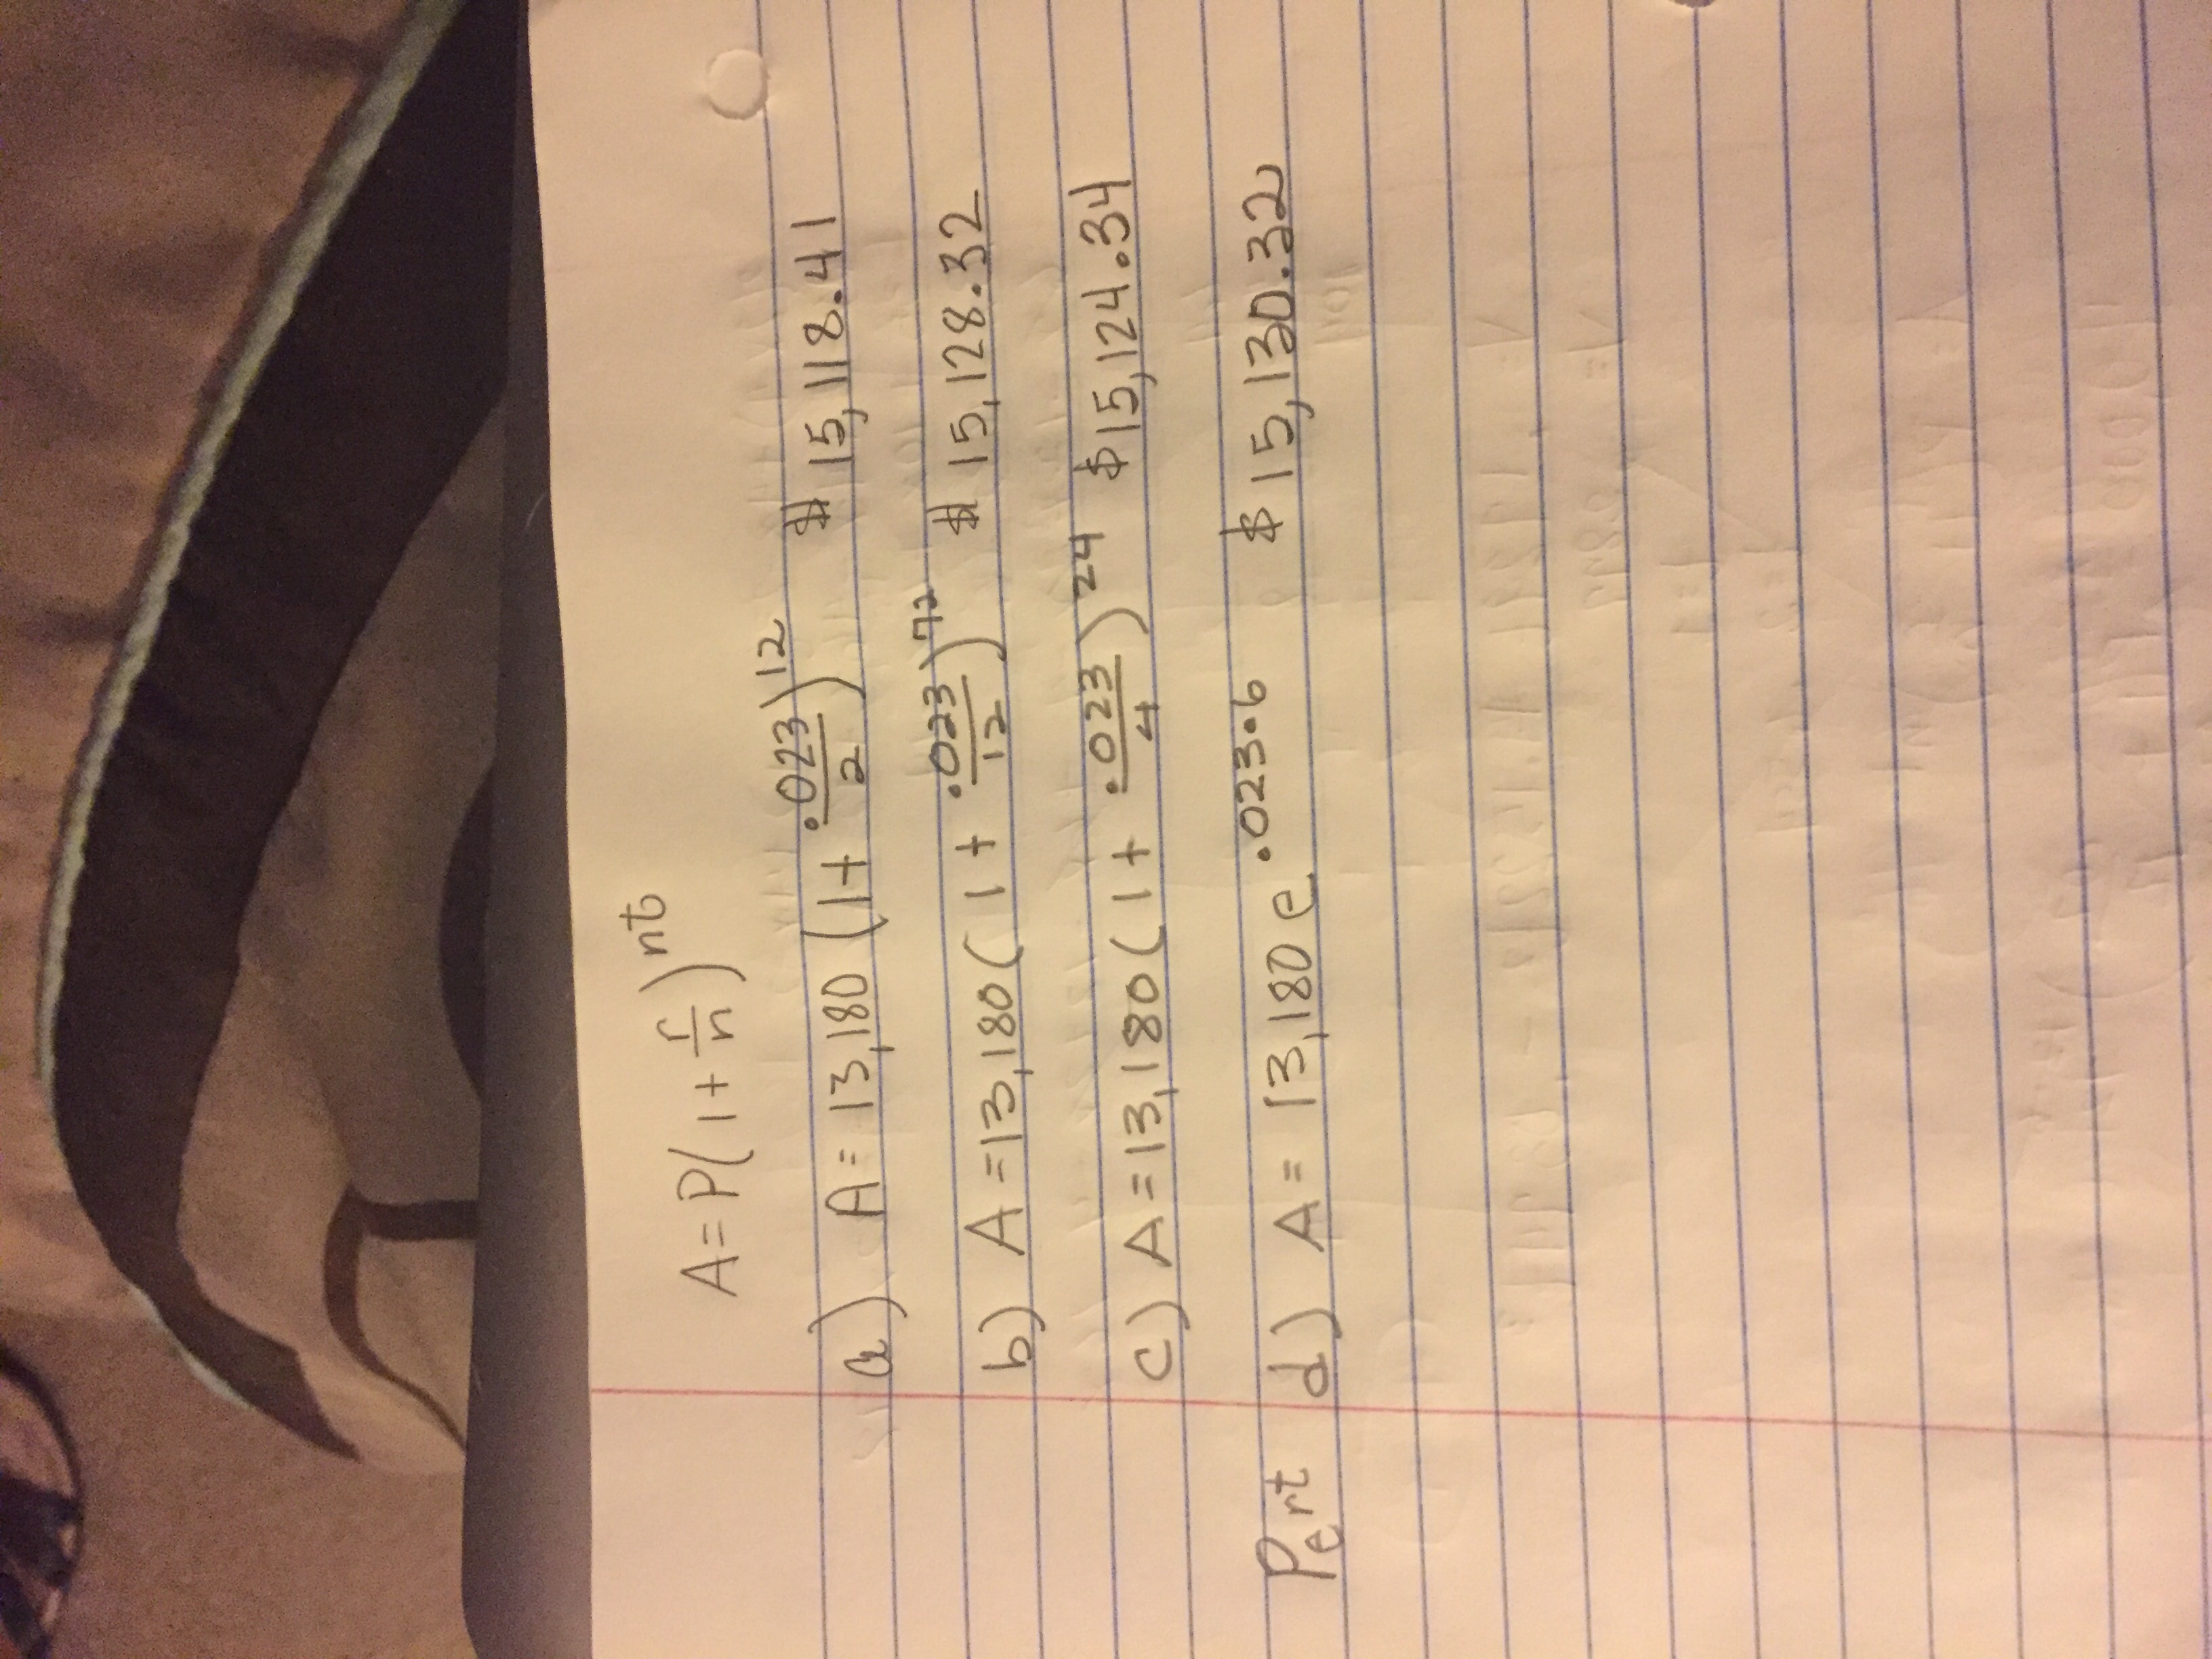 A = P(1 + r/n)^nt
a) A = 13,180 (1 + .023/2)^12 $ 15,118.41
b) A = 13,180 (1 + .023/12)^72 $ 15,128.32
c) A = 13,180 (1 + .023/4)^24 $15,124.34
Pe^rt d) A = 13,180 e^.023·6 $ 15,130.32